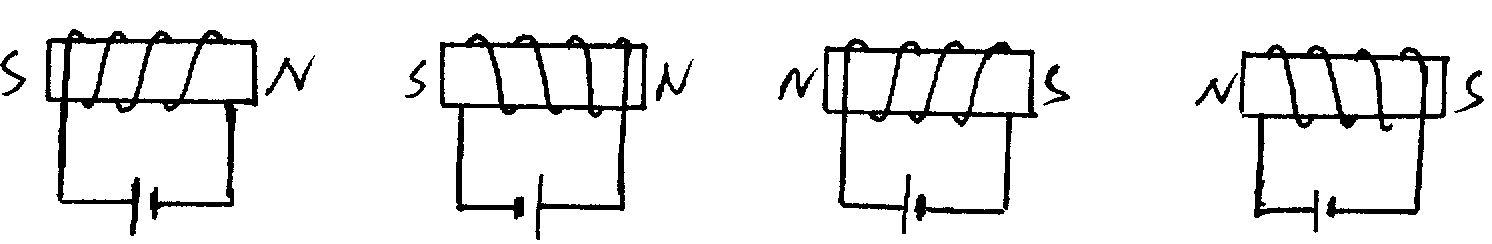 S N S N N S N S